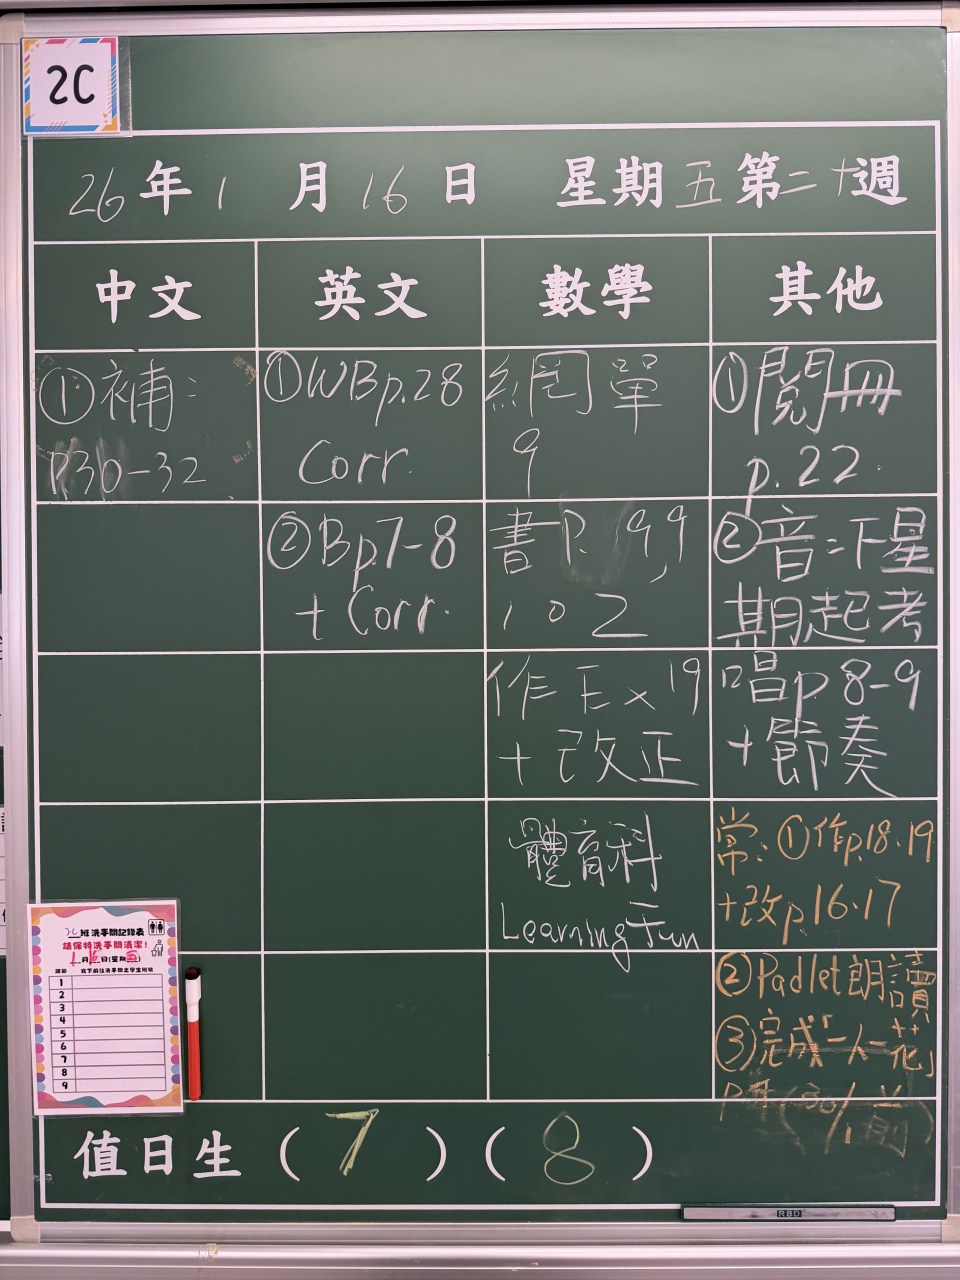 2C
26年1月16日 星期五第二十週
中文
英文
數學
其他
①補:
P30-32
①WBp.28
Corr.
網單
9
①閱冊
p.22.
②Bp7-8
+Corr.
書P.99,
102
②音:下星
期起考
作Ex19
+改正
唱p8-9
+節奏
體育科
Learning Fun
常:①作p.18.19
+改p.16.17
②Padlet朗讀
③完成「一人一花」
2C班洗手間記錄表
請保持洗手間清潔!
課節 寫下前往洗手間之學生班號
1
2
3
4
5
6
7
8
9
值日生(7)(8)
RBD